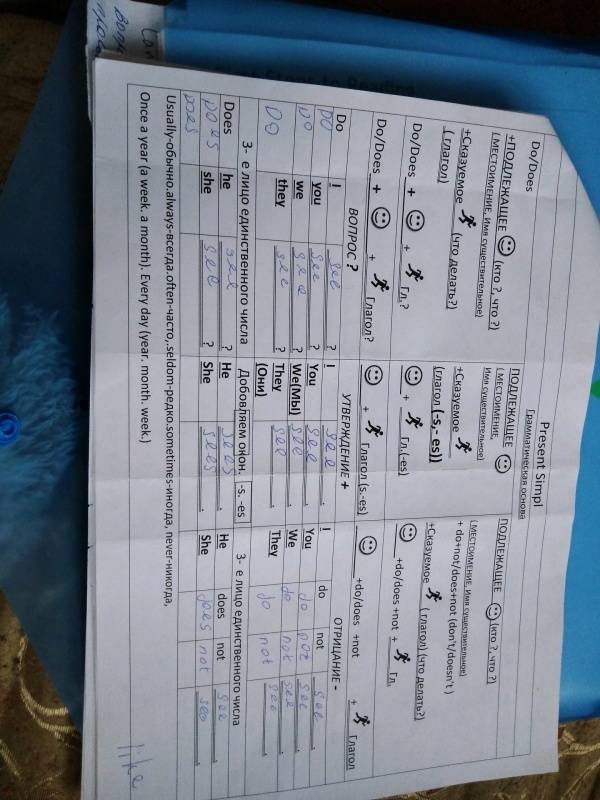 Present Simpl
Грамматическая основа
Do/Does
+ПОДЛЕЖАЩЕЕ (кто ?, что ?)
(МЕСТОИМЕНИЕ, Имя существительное)
+Сказуемое (что делать?)
(глагол)
ПОДЛЕЖАЩЕЕ
(МЕСТОИМЕНИЕ,
Имя существительное)
+Сказуемое
(глагол (-s,- es))
ПОДЛЕЖАЩЕЕ (кто ?, что ?)
(МЕСТОИМЕНИЕ, Имя существительное)
+ do+not/does+not (don't/doesn't )
+Сказуемое (глагол) (что делать?)
Do/Does + + Гл.?
+ Гл.(-es)
+do/does +not + Гл.
Do/Does + + Глагол?
+ Глагол (s.-es)
+do/does +not + Глагол
ВОПРОС ?
УТВЕРЖДЕНИЕ +
ОТРИЦАНИЕ -
Do I see ?
I see .
I do not see .
Do you see ?
You see .
You do not see .
Do we see ?
We(МЫ) see .
We do not see .
Do they see ?
They see .
(Они)
They do not see .
3- е лицо единственного числа
Добовляем окон. -s. -es
3- е лицо единственного числа
Does he see ?
He sees .
He does not see .
Does she see ?
She sees .
She does not see .
Does
Usually-обычно.always-всегда.often-часто,.seldom-редко.sometimes-иногда, never-никогда,
Once a year (a week. a month). Every day (year. month. week.)
like